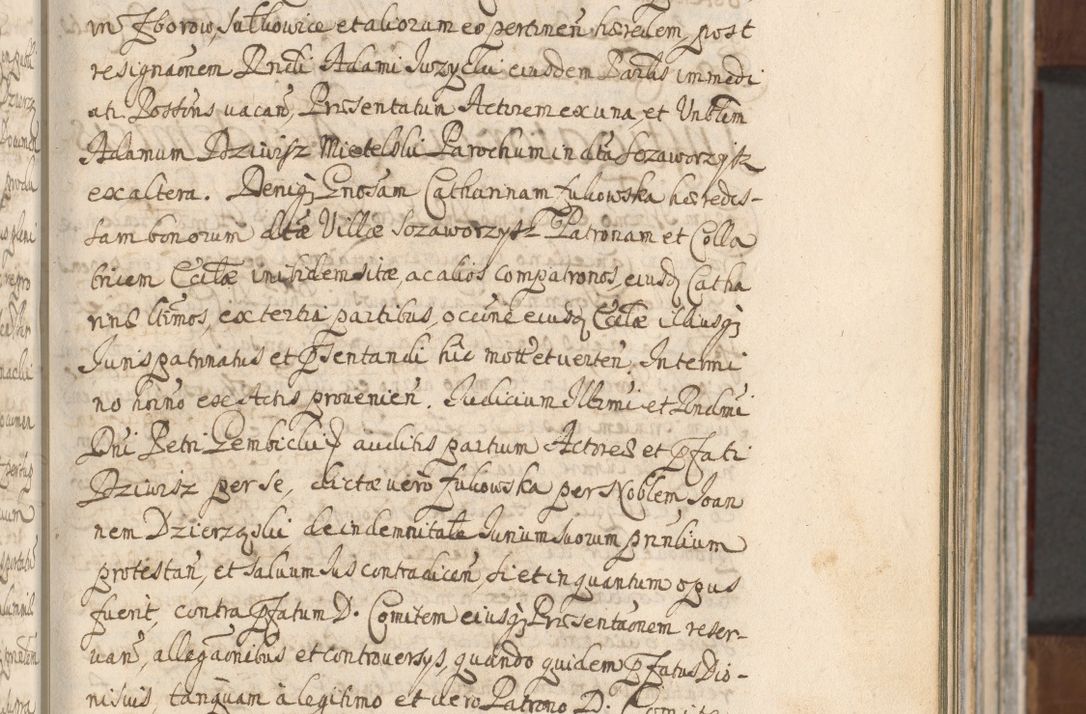 in Zborow, Sułkowice et aliorum eo pertinen̄ hæredem, post
resignaōnem Rndi Adami Jurzycki eiusdem Parlis immedi
ati Possōris vacan̄, Præsentatum Actorem ex una, et Vnblem
Adamum Dziwisz Mietelski Parochum in dta Sczaworzysz
ex altera. Deniq Gnosam Catharinam Zukowska hæredis-
sam bonorum dtæ Villæ Sczaworzysz Patronam et Colla
tricem Eccliæ inibidem sitæ, ac alios compatronos, eiusd Catha
rinæ Ultimos, ex tertia partibus, occōne eiusd Eccliæ illiusq
Jurispatronatus et pſentandi hic mott et verten̄, In termi
no horno ex Actis provenien̄. Judicium Illrmi et Rndmi
Dni Petri Gembicki auditis partium Actores et pfati
Dziwisz per se, dictæ vero Zukowska per Noblem Joan
nem Dzierzgski de indemnitate Jurium suorum pnnlium
protestan̄, et salvum Jus contradicen̄, si et in quantum opus
fuerit, contra pfatum D. Comitem eiusq Præsentaōnem reser-
van̄, allegaōnibus et controversijs, quando quidem pfatus Dio-
nisius, tanquam a legitimo et vero Patrono D. Comite